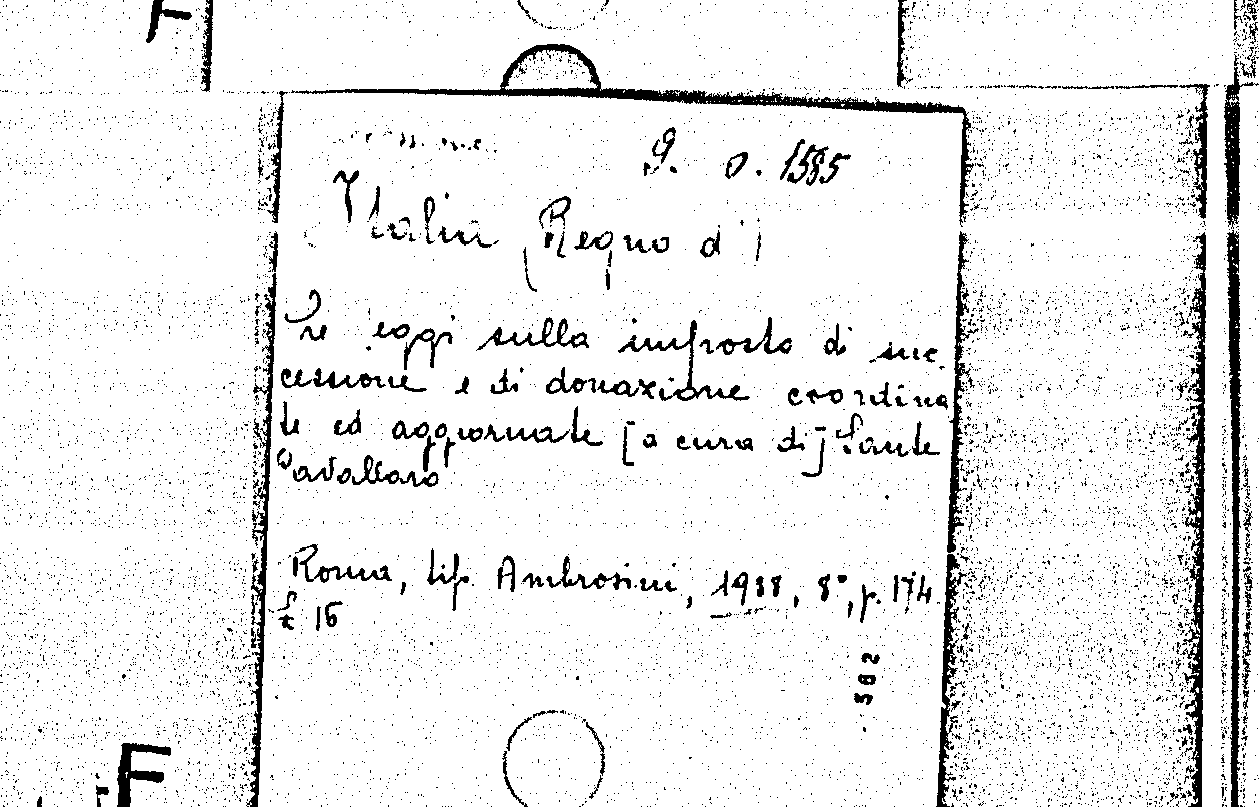 F
9. o. 1585
Italia (Regno d')
Le leggi sulla imposta di suc
cessione e di donazione coordina
te ed aggiornate [a cura di] Sante
Cavallaro
Roma, tip. Ambrosini, 1938, 8°, p. 174
£ 16
502
F